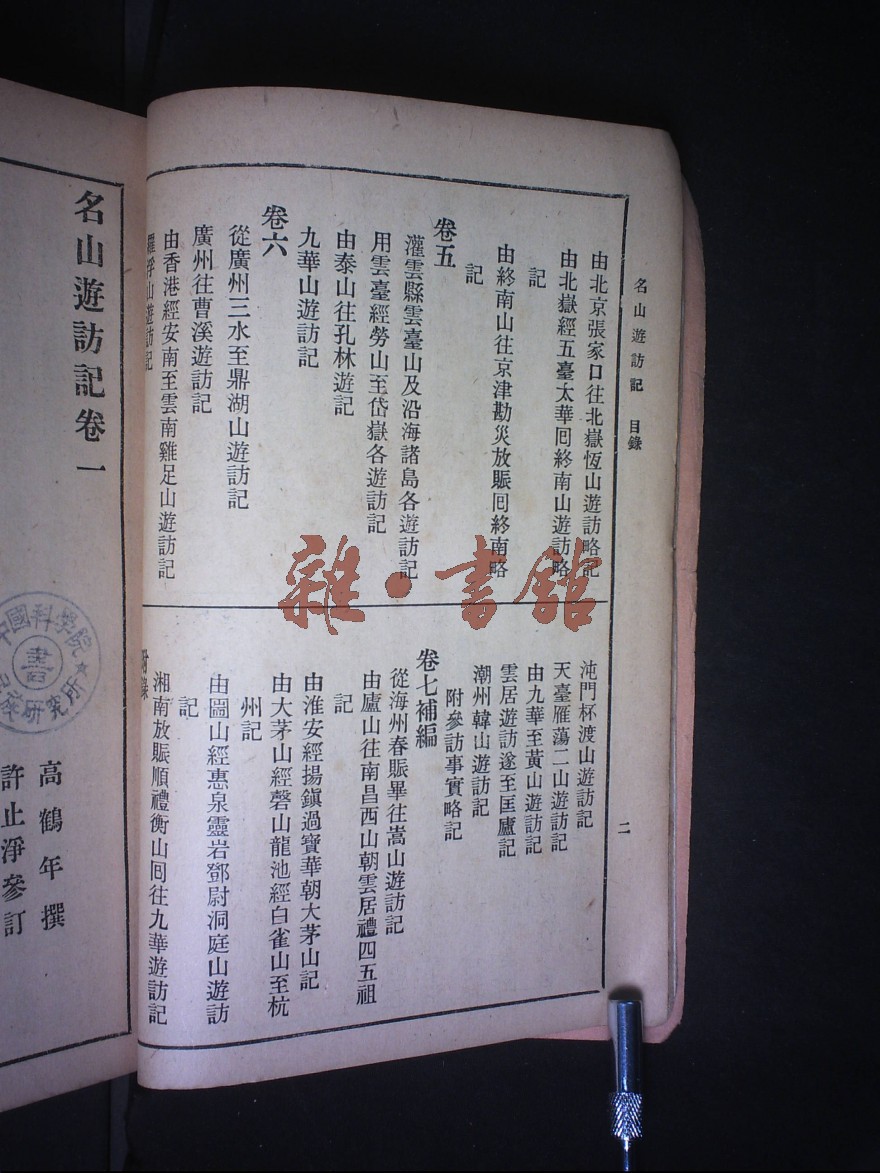 名山遊訪記　目錄
二
由北京張家口往北嶽恆山遊訪略記
由北嶽經五臺太華囘終南山遊訪略
記
由終南山往京津勘災放賑囘終南略
記
卷五
灌雲縣雲臺山及沿海諸島各遊訪記
用雲臺經勞山至岱嶽各遊訪記
由泰山往孔林遊記
九華山遊訪記
卷六
從廣州三水至鼎湖山遊訪記
廣州往曹溪遊訪記
由香港經安南至雲南雞足山遊訪記
羅浮山遊訪記
沌門杯渡山遊訪記
天臺雁蕩二山遊訪記
由九華至黃山遊訪記
雲居遊訪遂至匡廬記
潮州韓山遊訪記
附參訪事實略記
卷七補編
從海州春賑畢往嵩山遊訪記
由廬山往南昌西山朝雲居禮四五祖
記
由淮安經揚鎭過寶華朝大茅山記
由大茅山經磬山龍池經白雀山至杭
州記
由圌山經惠泉靈岩鄧尉洞庭山遊訪
記
湘南放賑順禮衡山囘往九華遊訪記
附錄
名山遊訪記卷一
高鶴年撰
許止淨參訂
中國科學院
書
研究所
雜·書館